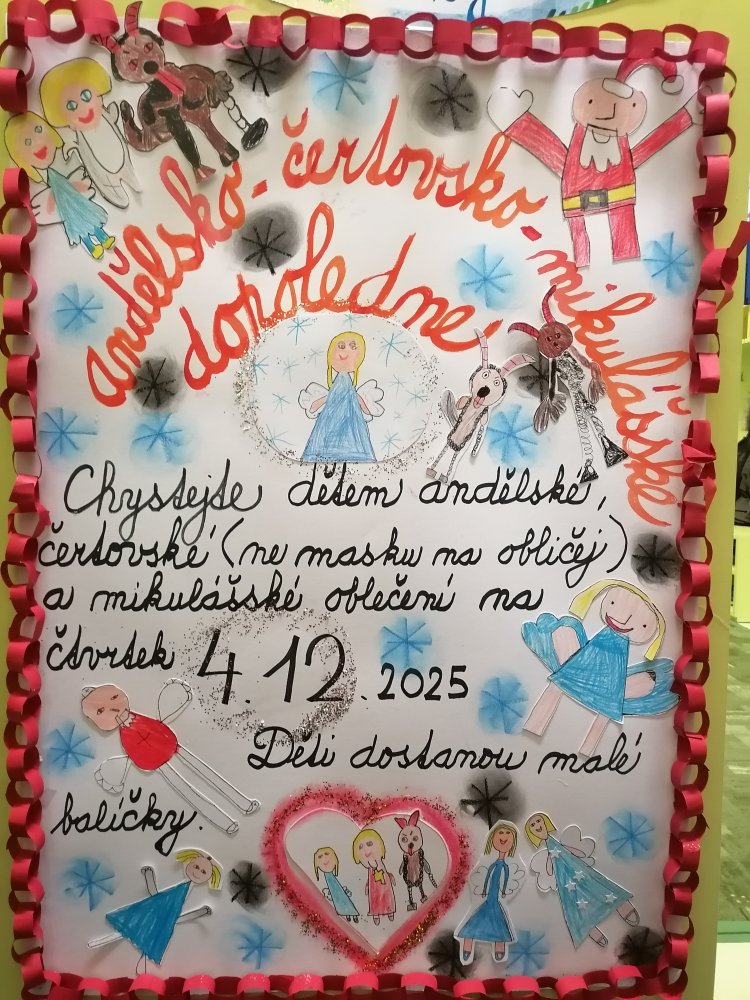 andělsko-čertovsko-mikulášské
dopoledne
Chystejte dětem andělské,
čertovské (ne masku na obličej)
a mikulášské oblečení na
čtvrtek 4.12.2025
Děti dostanou malé
balíčky.